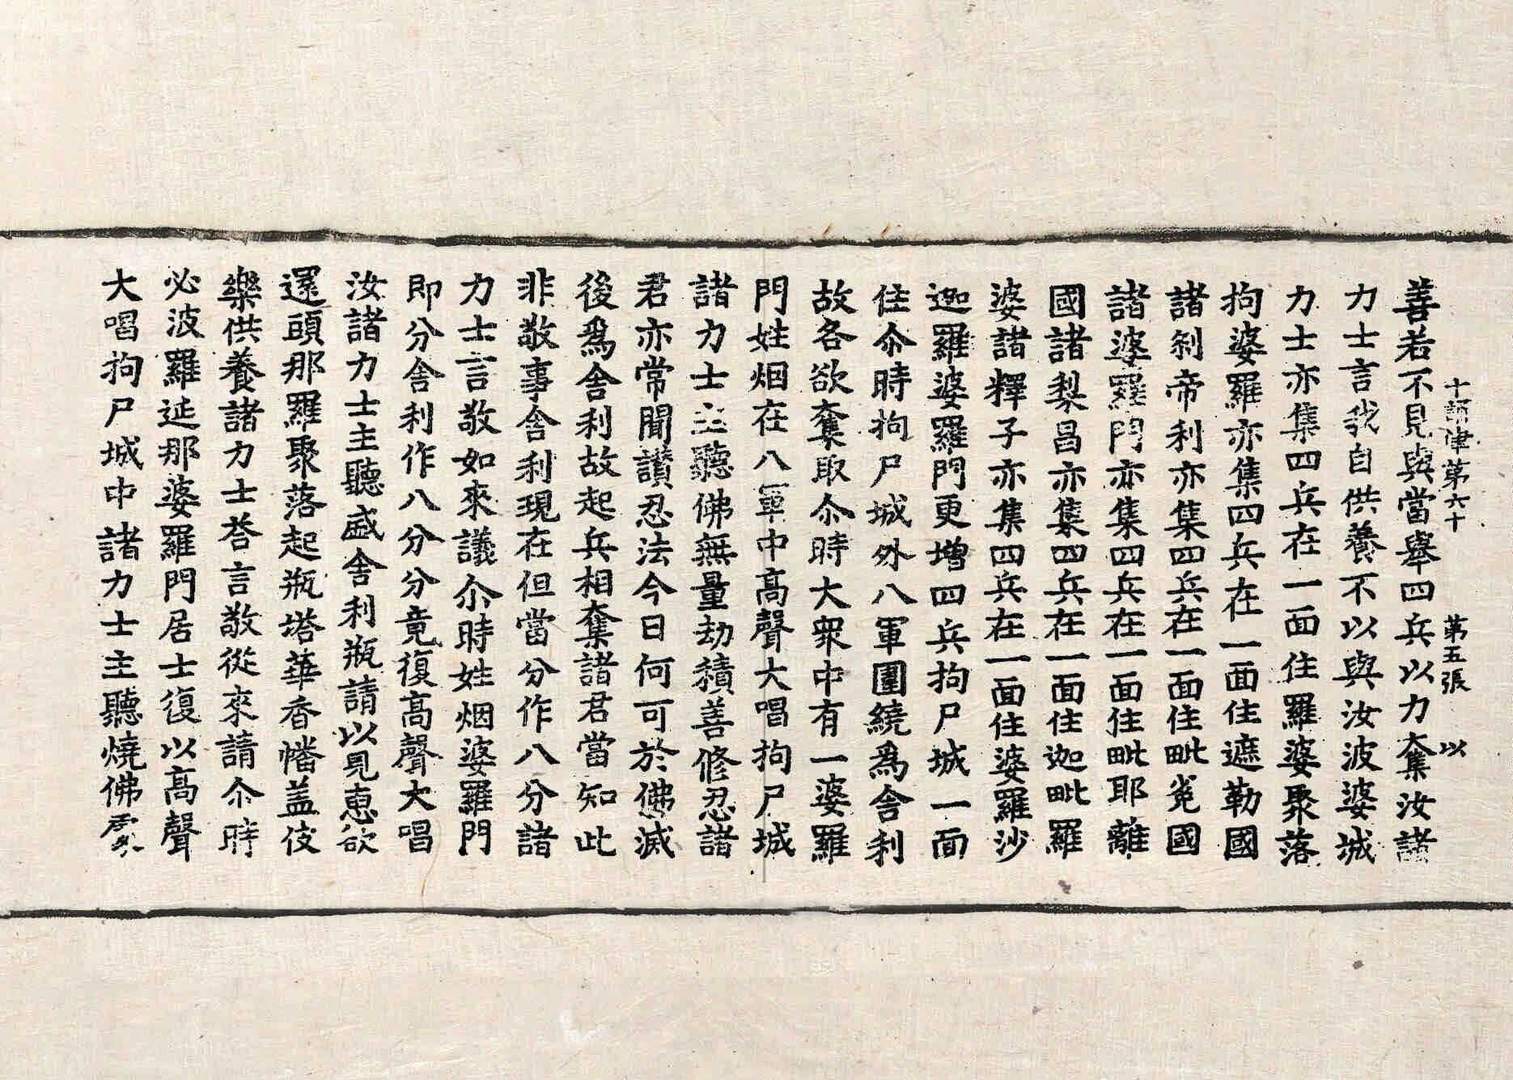 十誦律第六十 第五張 以
善若不見與當舉四兵以力奪汝諸
力士言我自供養不以與汝波婆城
力士亦集四兵在一面住羅婆聚落
拘婆羅亦集四兵在一面住遮勒國
諸刹帝利亦集四兵在一面住毗㝹國
諸婆羅門亦集四兵在一面住毗耶離
國諸梨昌亦集四兵在一面住迦毗羅
婆諸釋子亦集四兵在一面住婆羅沙
迦羅婆羅門更增四兵拘尸城一面
住尒時拘尸城外八軍圍繞爲舍利
故各欲奪取尒時大衆中有一婆羅
門姓烟在八軍中高聲大唱拘尸城
諸力士主聽佛無量劫積善修忍諸
君亦常聞讚忍法今日何可於佛滅
後爲舍利故起兵相奪諸君當知此
非敬事舍利現在但當分作八分諸
力士言敬如來議尒時姓烟婆羅門
即分舍利作八分分竟復高聲大唱
汝諸力士主聽盛舍利瓶請以見惠欲
還頭那羅聚落起瓶塔華香幡盖伎
樂供養諸力士荅言敬從來請尒時
必波羅延那婆羅門居士復以高聲
大唱拘尸城中諸力士主聽燒佛處